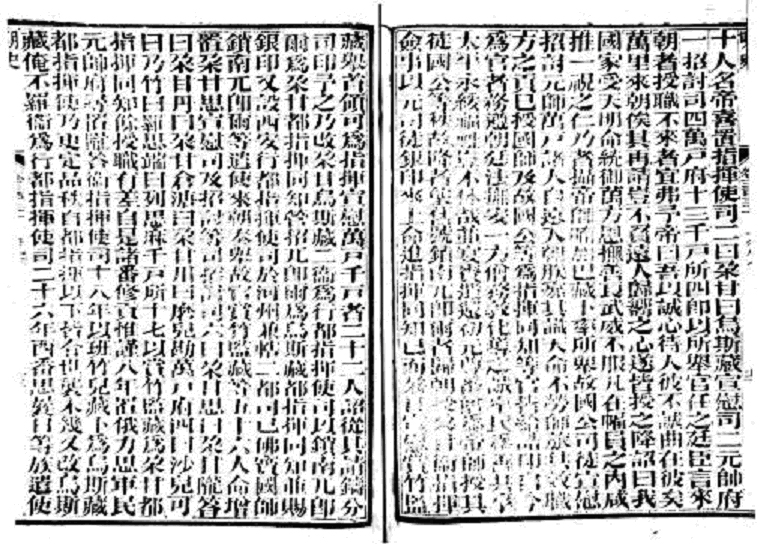 十人名帝喜置指揮使司二曰朵甘曰烏斯藏宣慰司二元帥府
一招討司四萬戶府十三千戶所四即以所舉官任之廷臣言來
朝者授職不來者宜弗予帝曰吾以誠心待人彼不誠曲在彼矣
萬里來朝俟其再請豈不負遠人歸嚮之心遂皆授之降詔曰我
國家受天明命統御萬方恩撫善良武威不服凡在幅員之內咸
推一視之仁乃者攝帝師喃加巴藏卜率所舉故國公司徒宣慰
招討元帥萬戶諸人自遠入朝朕嘉其識天命不勞師旅共效職
方之貢已授國師及故國公等為指揮同知等官皆給誥印自今
為官者務遵朝廷法撫安一方僧務敦化導之誠率民為善共享
太平永綏福祉豈不休哉並宴賚遣還初元尊番僧為帝師授其
徒國公等秩故降者襲舊號鎖南兀即爾者歸朝授朵甘衛指揮
僉事以元司徒銀印來上命進指揮同知已而朵甘宣慰賞竹監
藏舉首領可為指揮宣慰萬戶千戶者二十二人詔從其請鑄分
司印予之乃改朵甘烏斯藏二衛為行都指揮使司以鎖南兀即
爾為朵甘都指揮同知管招兀即爾為烏斯藏都指揮同知並賜
銀印又設西安行都指揮使司於河州兼轄二都司已佛寶國師
鎖南兀即爾等遣使來朝奏舉故官賞竹監藏等五十六人命增
置朵甘思宣慰司及招討等司招討司六曰朵甘思曰朵甘隴答
曰朵甘丹曰朵甘倉溏曰朵甘川曰磨兒勘萬戶府四曰沙兒可
曰乃竹曰羅思端曰列思麻千戶所十七以賞竹監藏為朵甘都
指揮同知餘授職有差自是諸番修貢惟謹八年置俄力思軍民
元帥府尋置隴答衛指揮使司十八年以班竹兒藏卜為烏斯藏
都指揮使乃更定品秩自都指揮以下皆令世襲未幾又改烏斯
藏俺不羅衛為行都指揮使司二十六年西番思曩日等族遣使